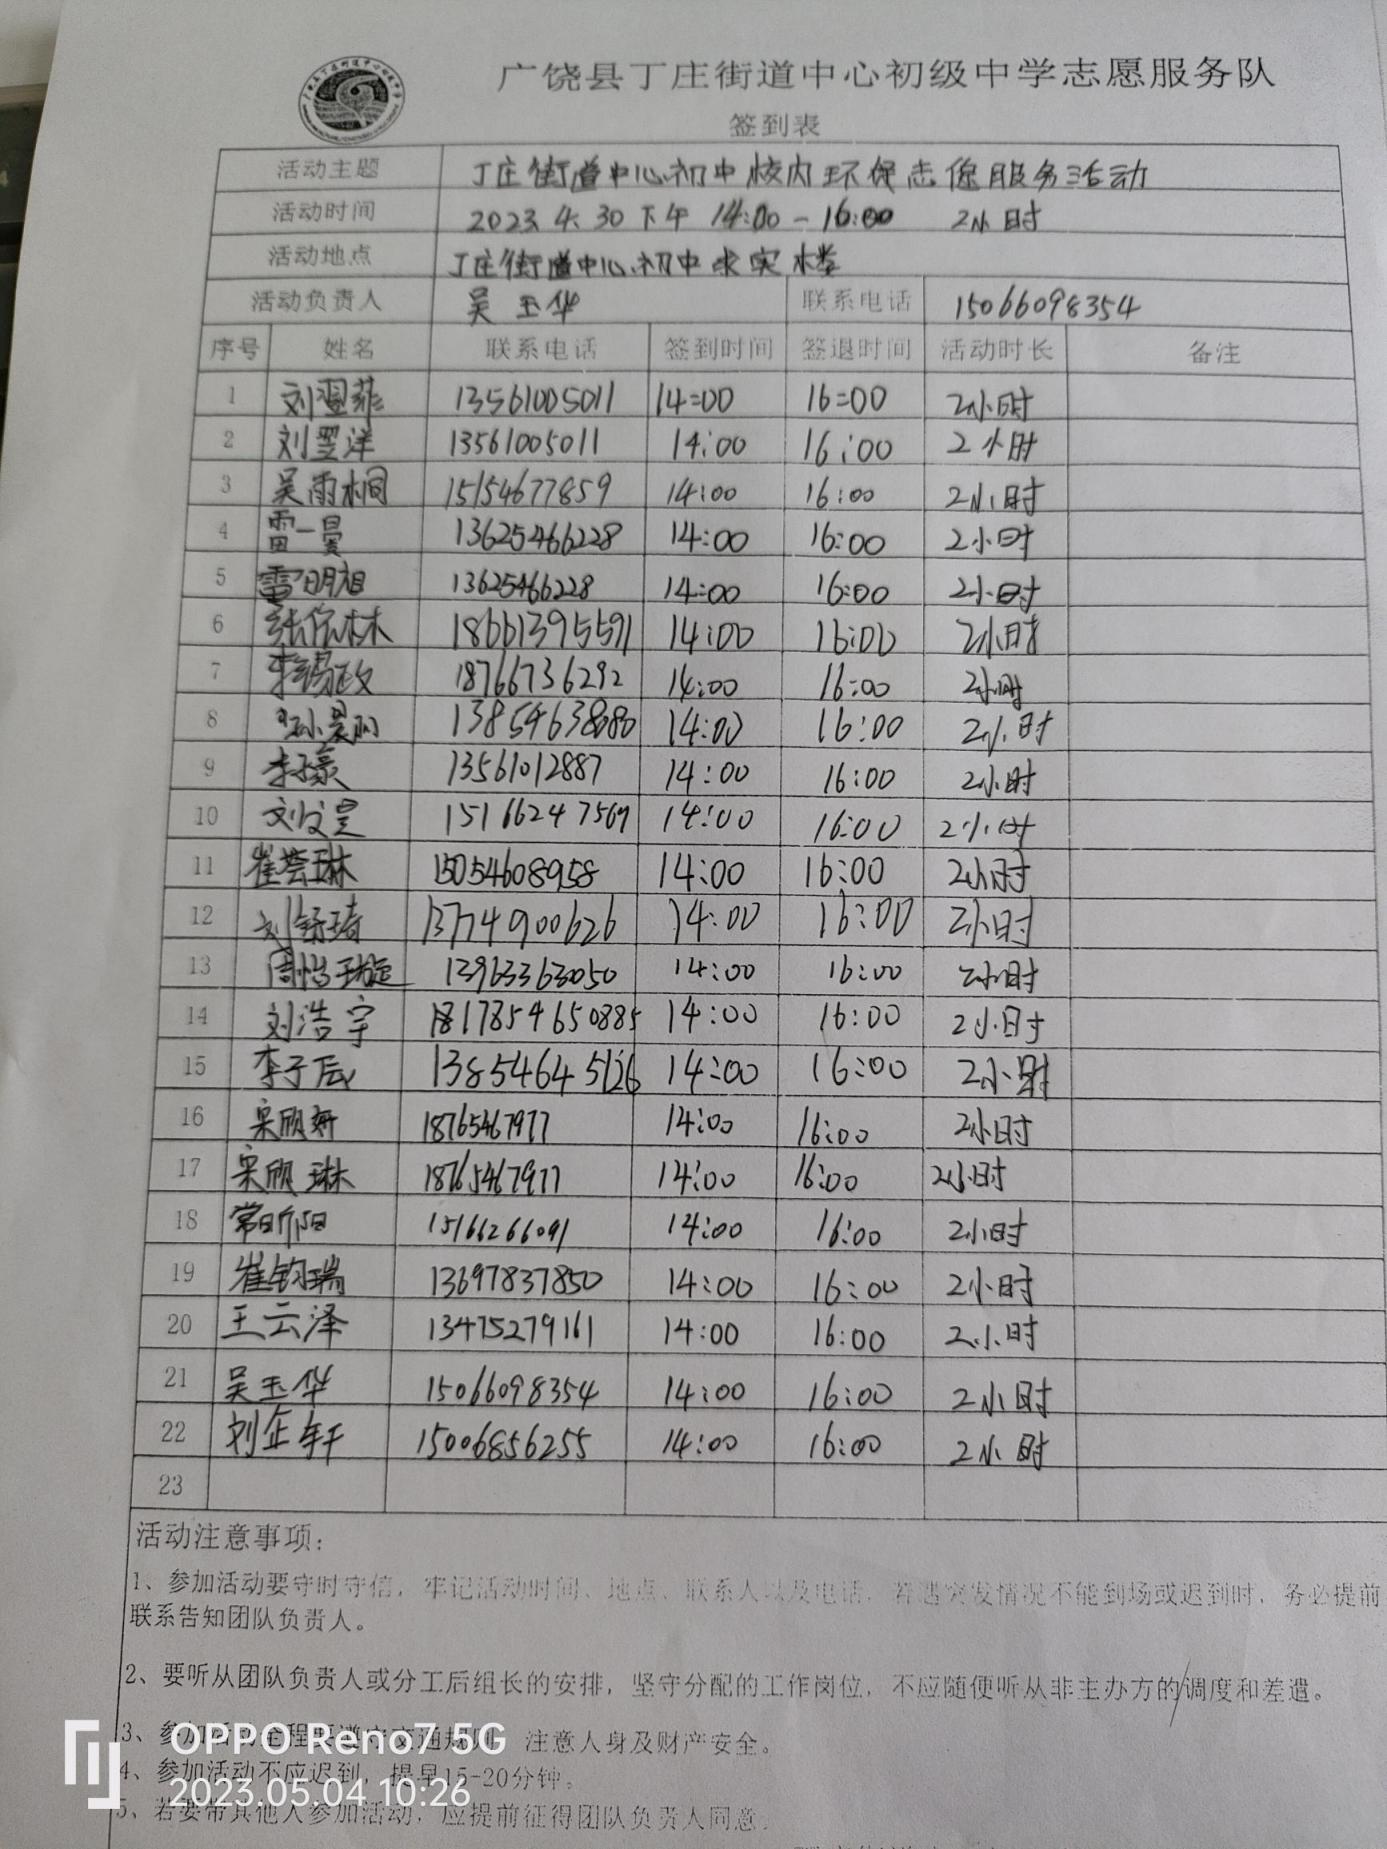 广饶县丁庄街道中心初级中学志愿服务队
签到表
活动主题 丁庄街道中心初中校内环保志愿服务活动
活动时间 2023.4.30下午 14:00-16:00 2小时
活动地点 丁庄街道中心初中求实楼
活动负责人 吴玉华 联系电话 15066098354
序号 姓名 联系电话 签到时间 签退时间 活动时长 备注
1 刘翌菲 13561005011 14:00 16:00 2小时
2 刘翌洋 13561005011 14:00 16:00 2小时
3 吴雨桐 15154677859 14:00 16:00 2小时
4 雷一曼 13625466228 14:00 16:00 2小时
5 雷明旭 13625466228 14:00 16:00 2小时
6 张依林 18661395591 14:00 16:00 2小时
7 李锡政 18766736292 14:00 16:00 2小时
8 14:00 16:00 2小时
9 李子豪 13561012887 14:00 16:00 2小时
10 刘文昊 15166247569 14:00 16:00 2小时
11 崔荟琳 15054608958 14:00 16:00 2小时
12 刘舒琦 13774900626 14:00 16:00 2小时
13 周怡璇 13963363050 14:00 16:00 2小时
14 刘浩宇 1817854650885 14:00 16:00 2小时
15 李子辰 13854645126 14:00 16:00 2小时
16 宋欣妍 18765467977 14:00 16:00 2小时
17 宋欣琳 18765467977 14:00 16:00 2小时
18 常昕阳 15166266091 14:00 16:00 2小时
19 崔钧瑞 13697837850 14:00 16:00 2小时
20 王云泽 13475279161 14:00 16:00 2小时
21 吴玉华 15066098354 14:00 16:00 2小时
22 刘企轩 15006856255 14:00 16:00 2小时
23
活动注意事项：
1、参加活动要守时守信，牢记活动时间、地点、联系人以及电话，若遇突发情况不能到场或迟到时，务必提前
联系告知团队负责人。
2、要听从团队负责人或分工后组长的安排，坚守分配的工作岗位，不应随便听从非主办方的调度和差遣。
3、参加活动全程要遵守交通规则，注意人身及财产安全。
4、参加活动不应迟到，提早15-20分钟。
5、若要带其他人参加活动，应提前征得团队负责人同意。
OPPO Reno7 5G
2023.05.04 10:26